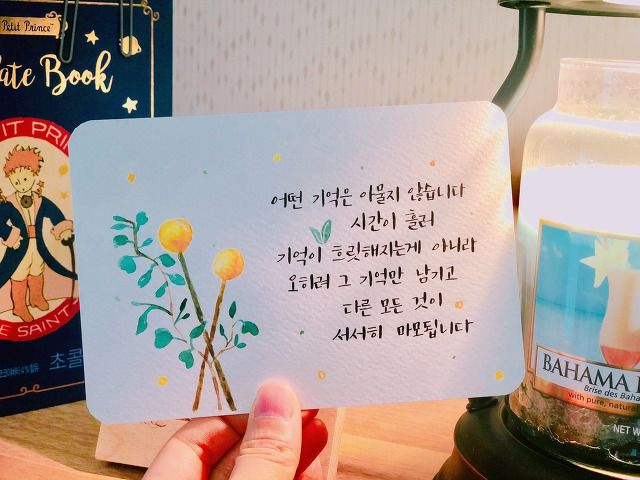 Petit Prince™
ate Book
어떤 기억은 아물지 않습니다
시간이 흘러
기억이 흐릿해지는게 아니라
오히려 그 기억만 남기고
다른 모든 것이
서서히 마모됩니다
IT PRIN
E SAINT
초콜
BAHAMA
Brise des Baha
with pure, natura
NET W